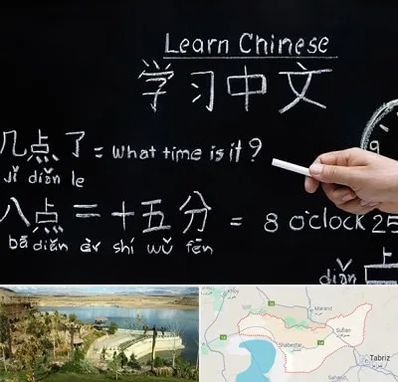 Learn Chinese
学习中文
几点了 = What time is it?
jǐ diǎn le
八点二十五分 = 8 o'clock 25
bā diǎn èr shí wǔ fēn
diǎn
9
Marand
Sufian
Shabestar
Tabriz